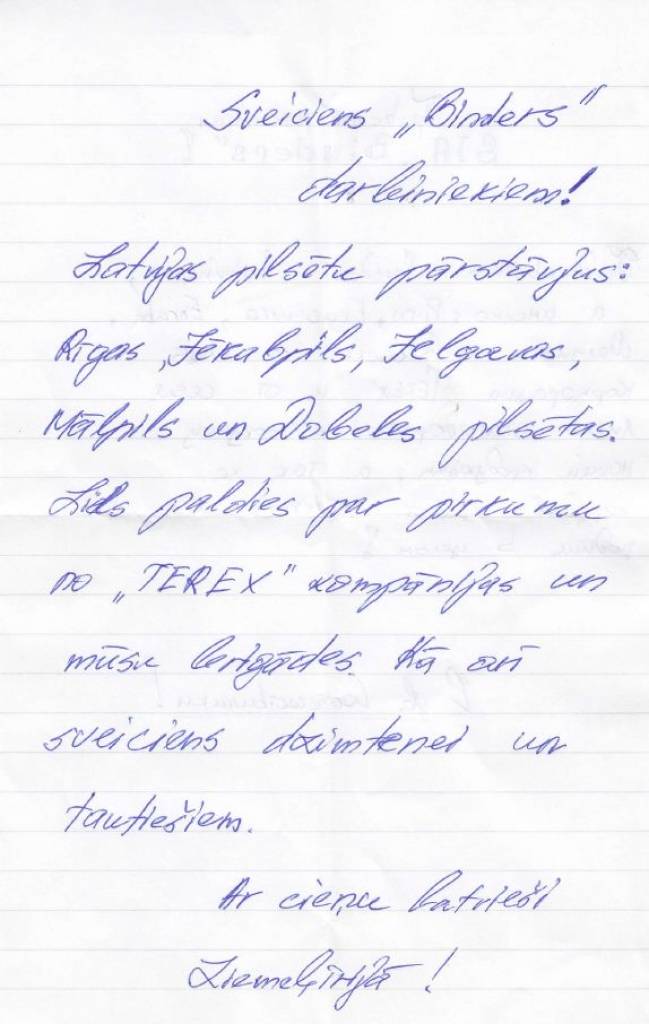 Sveiciens „Binders"
darbiniekiem!
Latvijas pilsētu pārstāvjus:
Rīgas, Jēkabpils, Jelgavas,
Mālpils un Dobeles pilsētas.
Liels paldies par pirkumu
no „TEREX" kompānijas un
mūsu brigādes. Kā arī
sveiciens dzimtenei un
tautiešiem.
Ar cieņu Latvieši
Ziemeļīrijā!